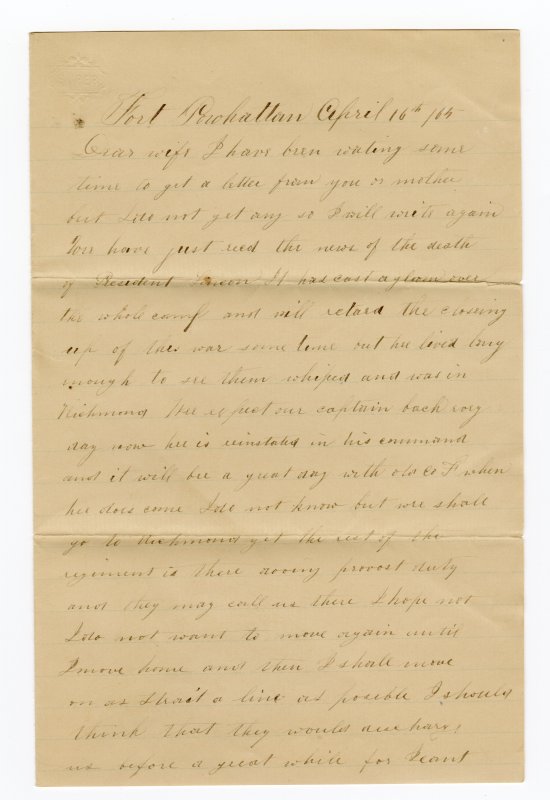 Fort Powhattan April 16th /65
Dear wife I have been waiting some
time to get a letter from you or mother
but I do not get any so I will write again
Wee have just recd the news of the death
of President Lincon It has cast a gloom over
the whole camp and will retard the closing
up of this war some time but hee lived long
enough to see them whiped and was in
Richmond Wee expect our captain back evry
day now hee is reinstated in his command
and it will bee a great day with old Co F when
hee does come I do not know but wee shall
go to Richmond yet the rest of the
regiment is there dooing provost duty
and they may call us there I hope not
I do not want to move again until
I move home and then I shall move
on as strait a line as posible I should
think that they would discharg
us before a great while for I cant